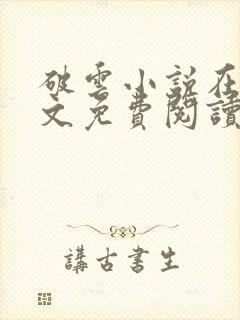 破雲小說在
文免費閱讀
講古書生